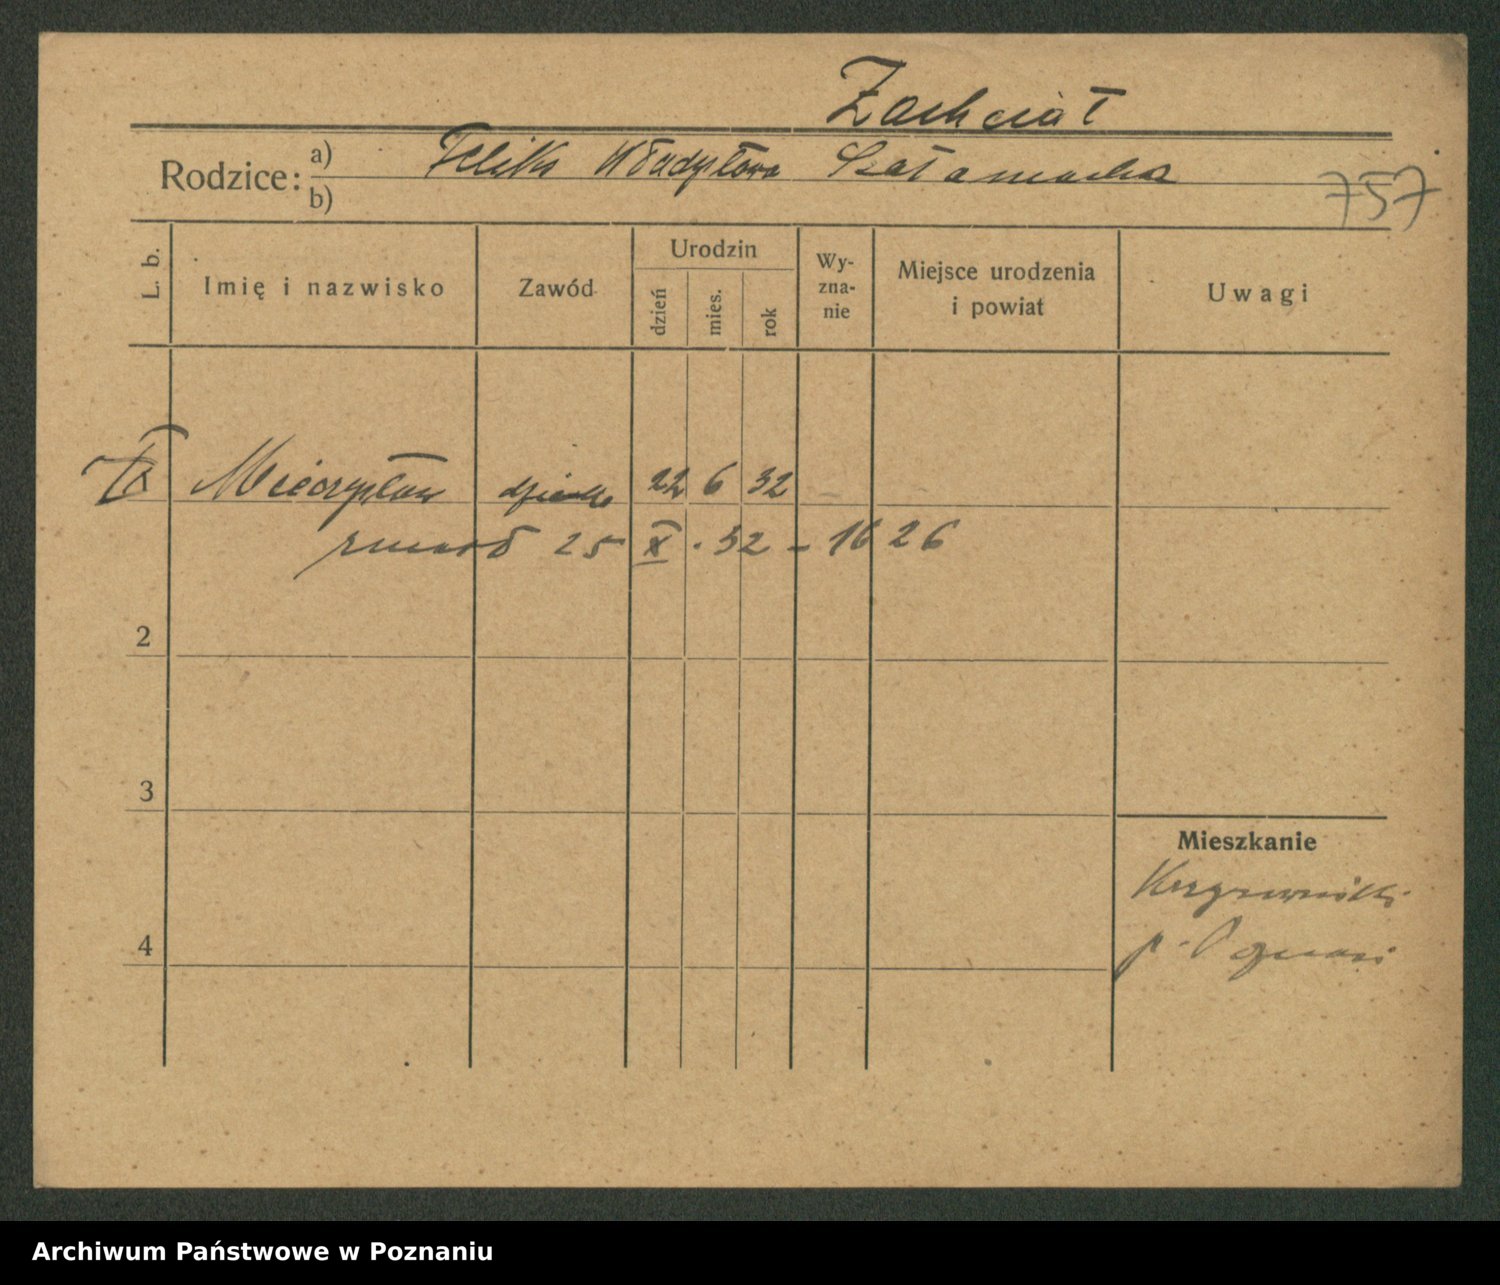 Zachciał
Rodzice: a) Feliks Władysława Szałamacha
b)
757
L. b.
Imię i nazwisko
Zawód
Urodzin
dzień
mies.
rok
Wy-
zna-
nie
Miejsce urodzenia
i powiat
Uwagi
Mieczysław dziecko 22 6 32
zmarł 25 X . 32 - 1626
2
3
Mieszkanie
4
Archiwum Państwowe w Poznaniu